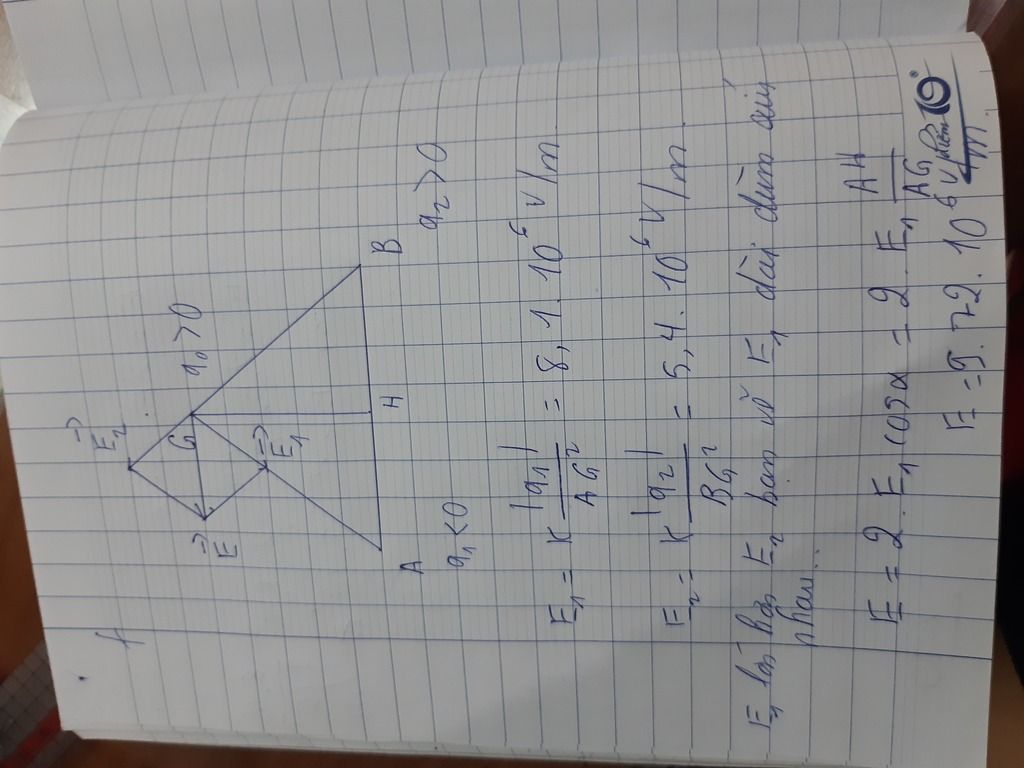 E₂
q₀>0
G
E
E₁
A H B
q₁<0 q₂>0
E₁ = K |q₁| / AG² = 8,1 . 10⁶ V/m
E₂ = K |q₂| / BG² = 5,4 . 10⁶ V/m
E₁ lớn hơn E₂ bạn vẽ E₁ dài dùm mik
nhan.
E = 2 . E₁ cosα = 2 . E₁ AH / AG
E = 9.72 . 10⁶ V/m